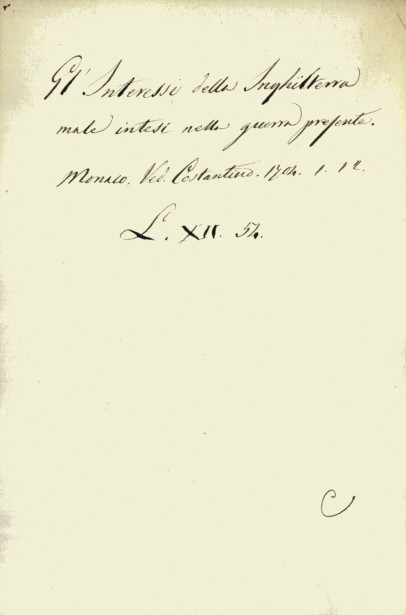 Gl' Interessi della Inghilterra
male intesi nella guerra presente.
Monaco. Ved. Costantino. 1704. 1. 12.
L. XII. 54.
C